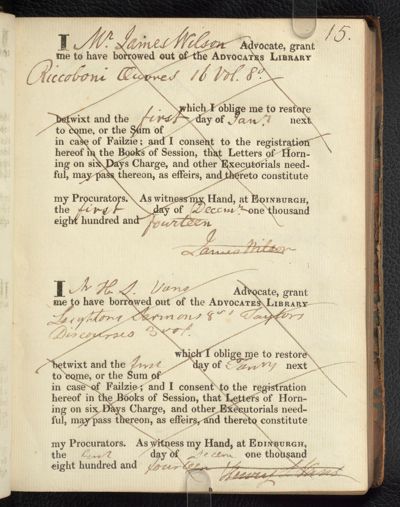 15.
I Mr. James Wilson Advocate, grant
me to have borrowed out of the ADVOCATES LIBRARY
Riccoboni Œuvres 16 Vol. 8o
which I oblige me to restore
betwixt and the first day of Jany. next
to come, or the Sum of
in case of Failzie; and I consent to the registration
hereof in the Books of Session, that Letters of Horn-
ing on six Days Charge, and other Executorials need-
ful, may pass thereon, as effeirs, and thereto constitute
my Procurators. As witness my Hand, at EDINBURGH,
the first day of Decemr. one thousand
eight hundred and fourteen
James Wilson
I Mr H. S. Vans Advocate, grant
me to have borrowed out of the ADVOCATES LIBRARY
Leightons Sermons 8vo Taylors
Discourses 3 vol.
which I oblige me to restore
betwixt and the first day of Jany next
to come, or the Sum of
in case of Failzie; and I consent to the registration
hereof in the Books of Session, that Letters of Horn-
ing on six Days Charge, and other Executorials need-
ful, may pass thereon, as effeirs, and thereto constitute
my Procurators. As witness my Hand, at EDINBURGH,
the first day of Decem one thousand
eight hundred and fourteen Henry S. Vans